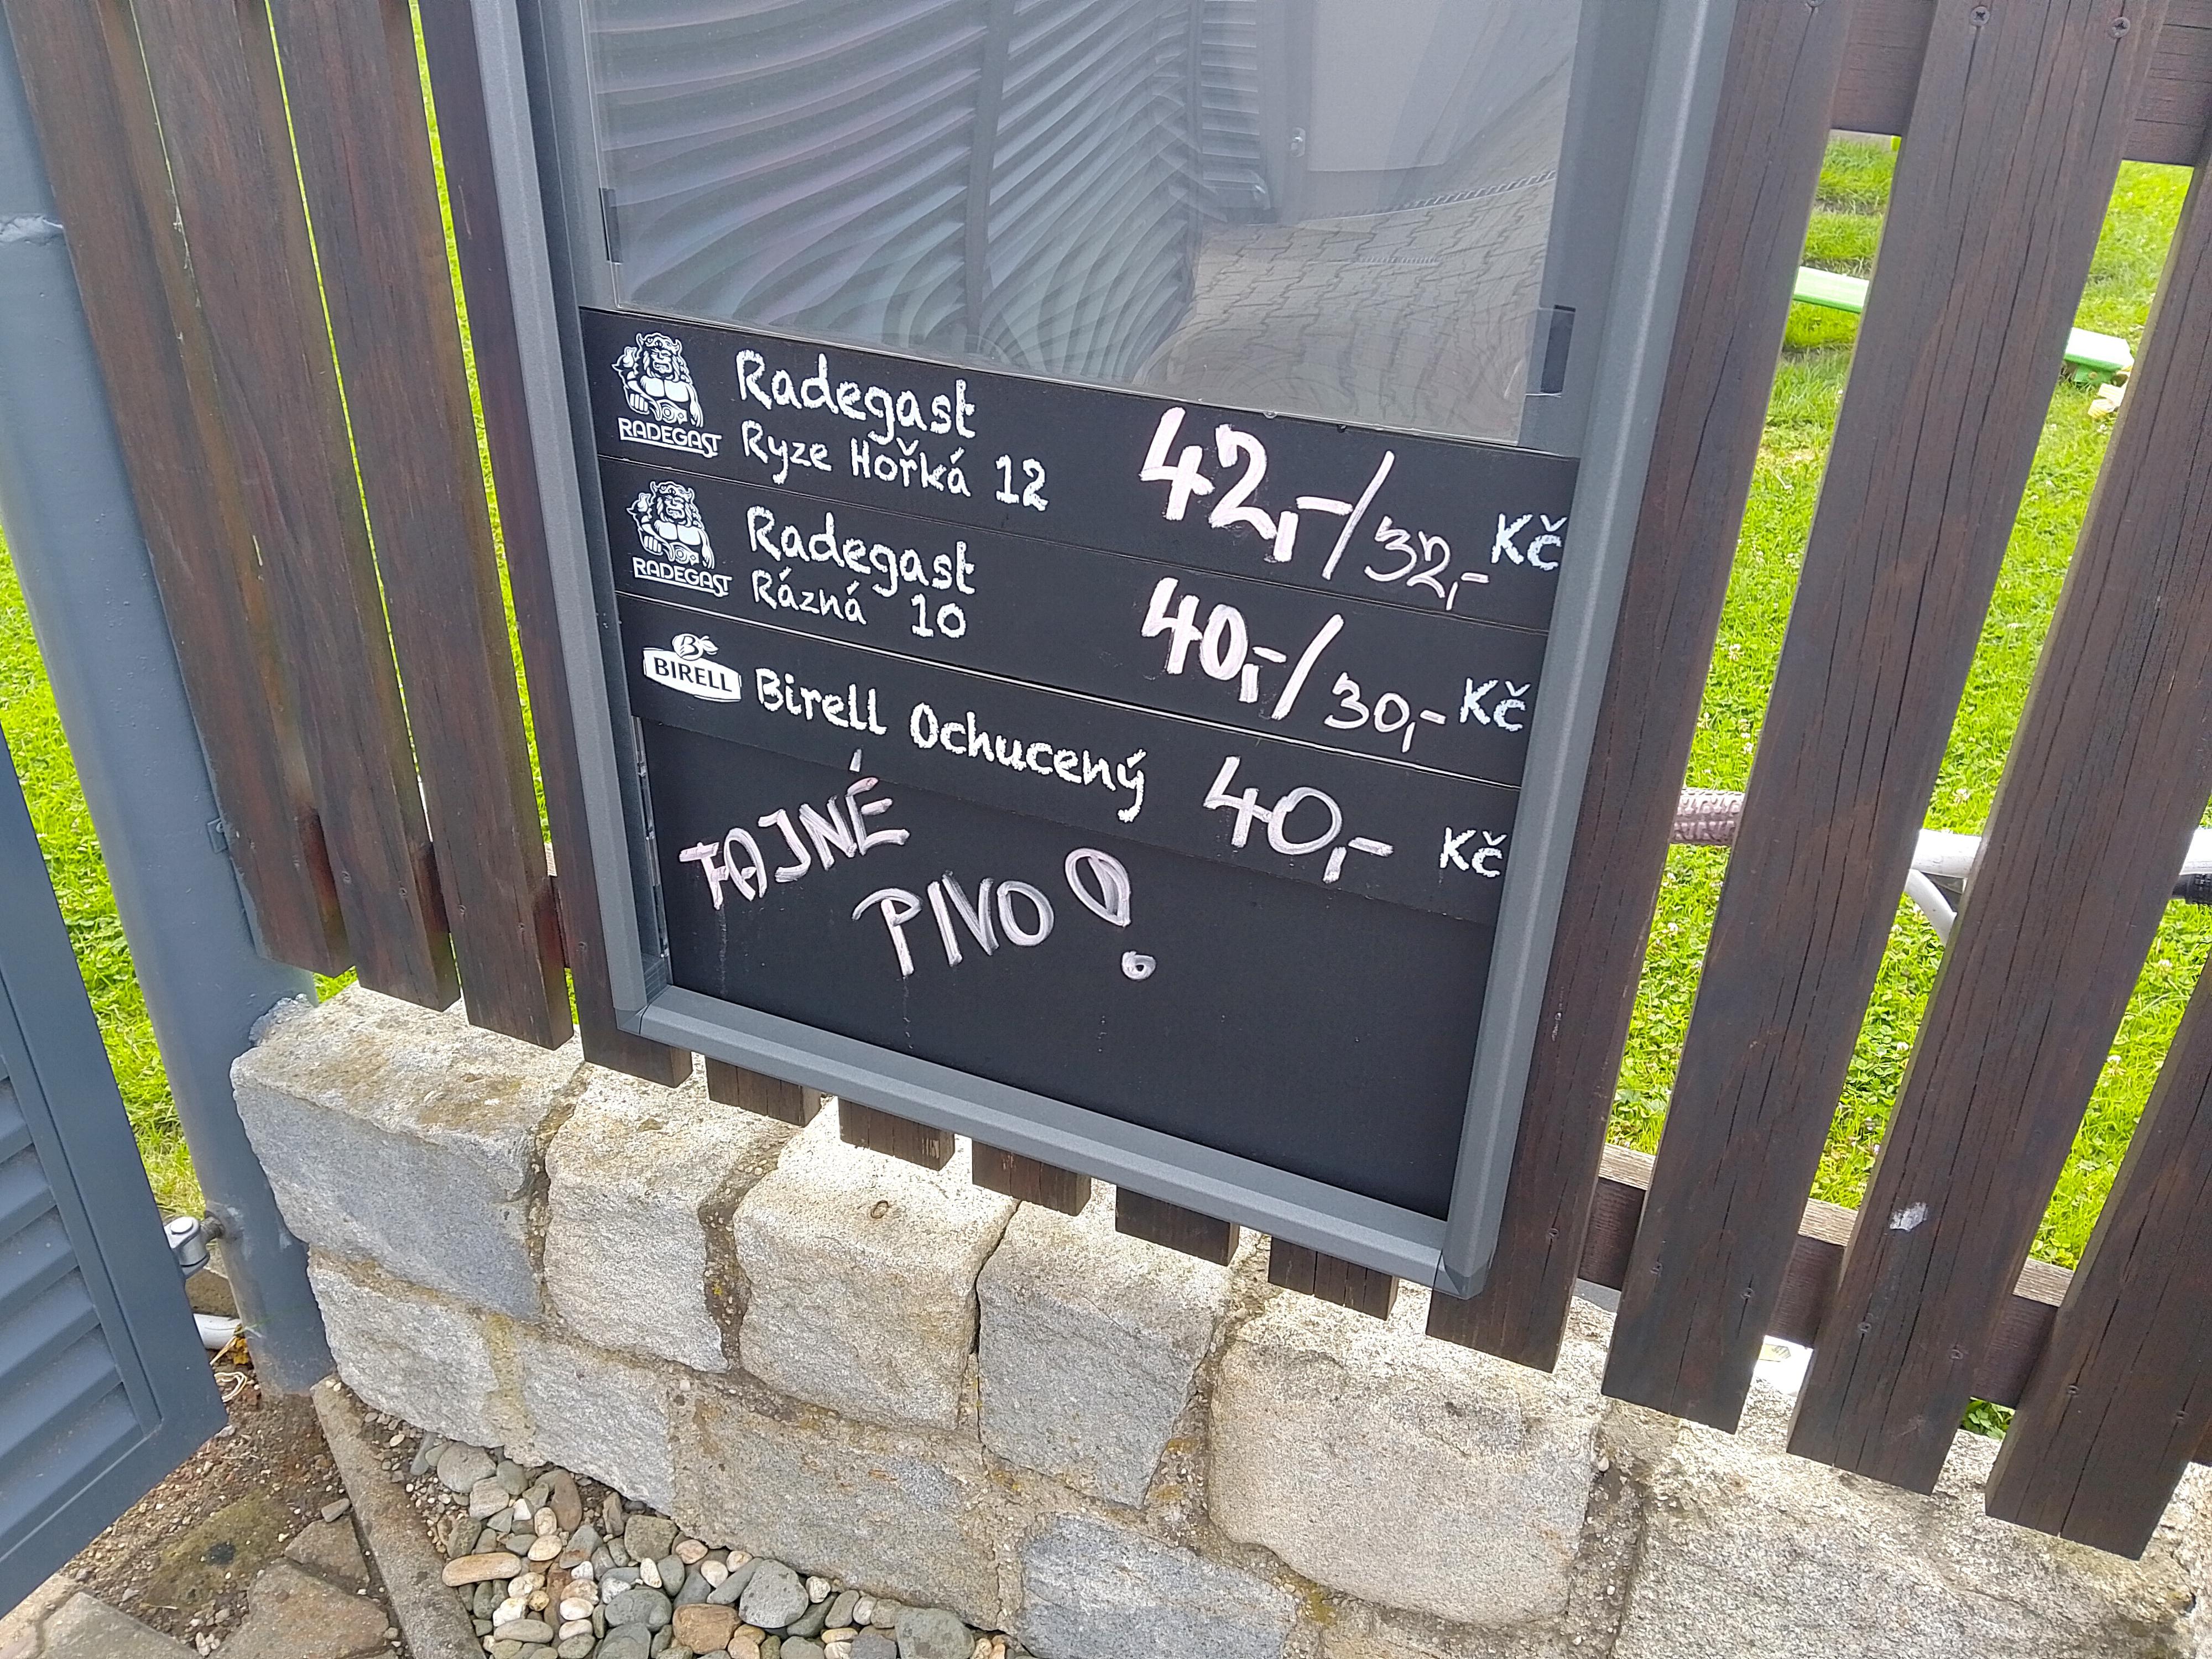 RADEGAST
Radegast
Ryze Hořká 12
42,-/32,- Kč
RADEGAST
Radegast
Rázná 10
40,-/30,- Kč
BIRELL
Birell Ochucený 40,- Kč
TAJNÉ
PIVO!